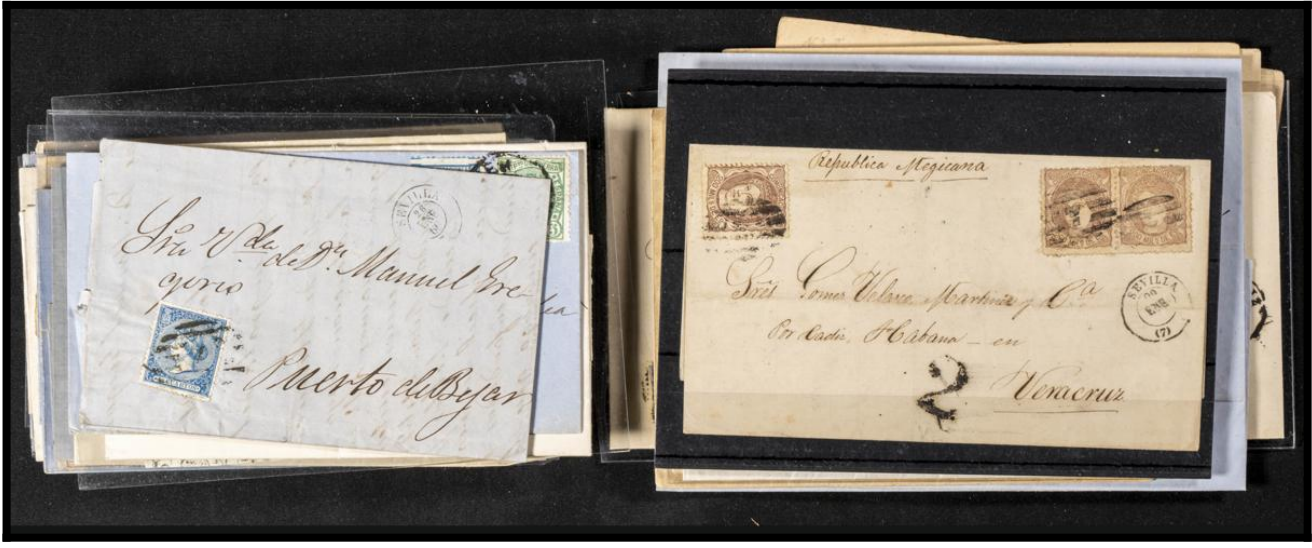 SEVILLA
Sra V.da de D.n Manuel Gre-
gorio
Puerto de Bejar
Republica Megicana
SEVILLA
ENE
(7)
Sres Gomez Velasco Martinez y C.a
Por Cadiz, Habana - en
Veracruz
2